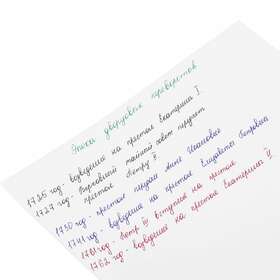 Эпоха дворцовых переворотов
1725 год - взошедшая на престол Екатерина I.
1727 год - Верховный тайный совет передает
престол Петру II
1730 год - престол передан Анне Иоановне
1741 год - взошедшая на престол Елизавета Петровна
1761 год - Петр III вступил на престол
1762 год - взошедшая на престол Екатерина II